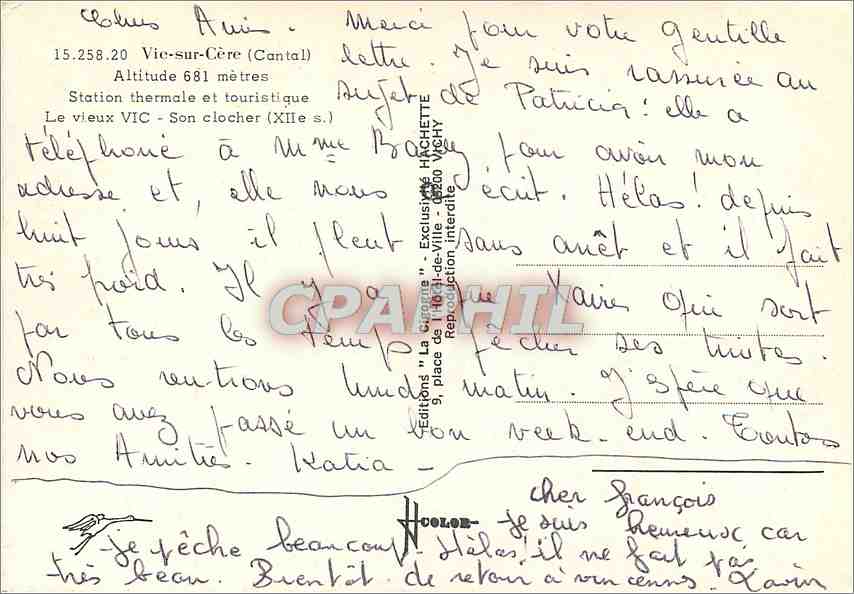 Chers Amis. Merci pour votre gentille
15.258.20 Vic-sur-Cère (Cantal)
Altitude 681 mètres
Station thermale et touristique
Le vieux VIC - Son clocher (XIIe s.)
lettre. Je suis rassurée au
sujet de Patricia : elle a
téléphoné à Mme pour avoir mon
adresse et, elle nous a écrit. Hélas ! depuis
huit jours il pleut sans arrêt et il fait
très froid. Il y a que Xavier qui sort
par tous les temps pêcher ses truites.
Nous rentrons lundi matin. J'espère que
vous avez passé un bon week-end. Toutes
nos Amitiés. Katia -
Editions " La Cigogne " - Exclusivité HACHETTE
9, place de l'Hôtel-de-Ville - 03200 VICHY
Reproduction interdite
CPAPHIL
COLOR
cher françois
je suis heureux car
je pêche beaucoup. Hélas il ne fait pas
très beau. Bientôt de retour à vincennes. Xavier